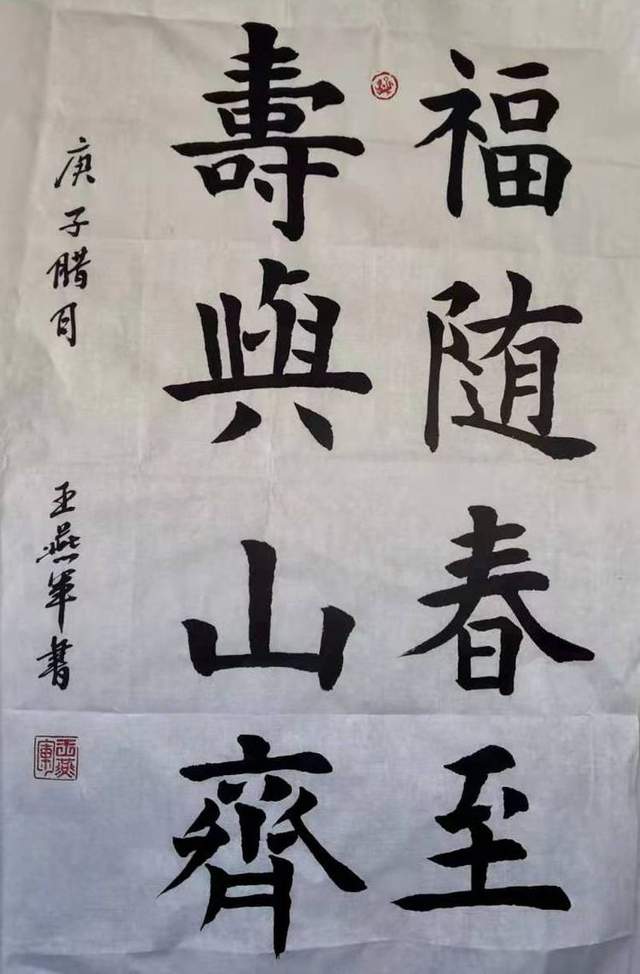 福随春至
壽與山齊
庚子腊月
王燕军書
王燕軍